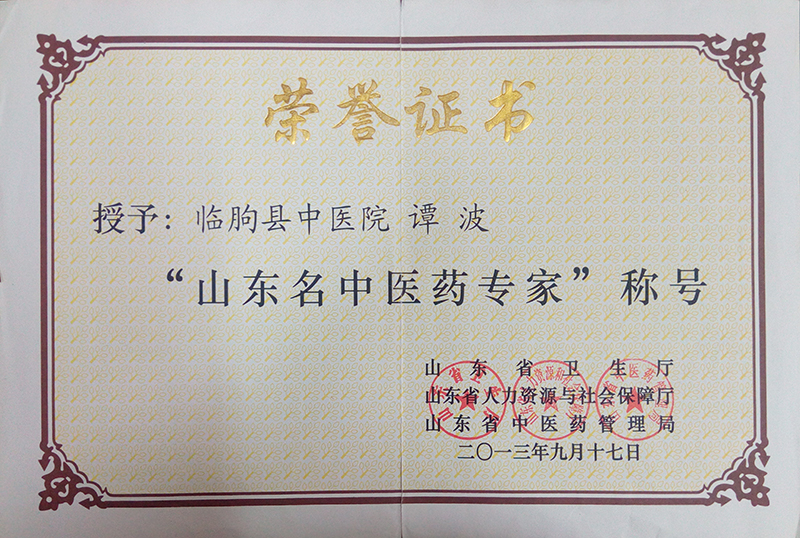 荣誉证书
授予：临朐县中医院 谭 波
“山东名中医药专家”称号
山东省卫生厅
山东省人力资源与社会保障厅
山东省中医药管理局
二〇一三年九月十七日